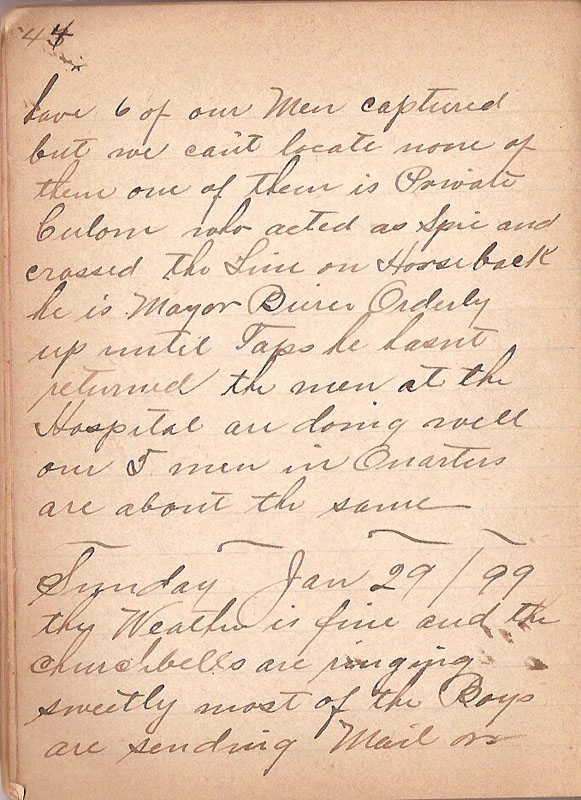 44
have 6 of our Men captured
but we cant locate none of
them one of them is Private
Culom who acted as Spie and
crossed the Line on Horseback
he is Mayor Bierer Orderly
up until Taps he hasnt
returned the men at the
Hospital are doing well
our 5 men in Quarters
are about the same
Sunday Jan 29/99
thy Weather is fine and the
churchbells are ringing
sweetly most of the Boys
are sending Mail on